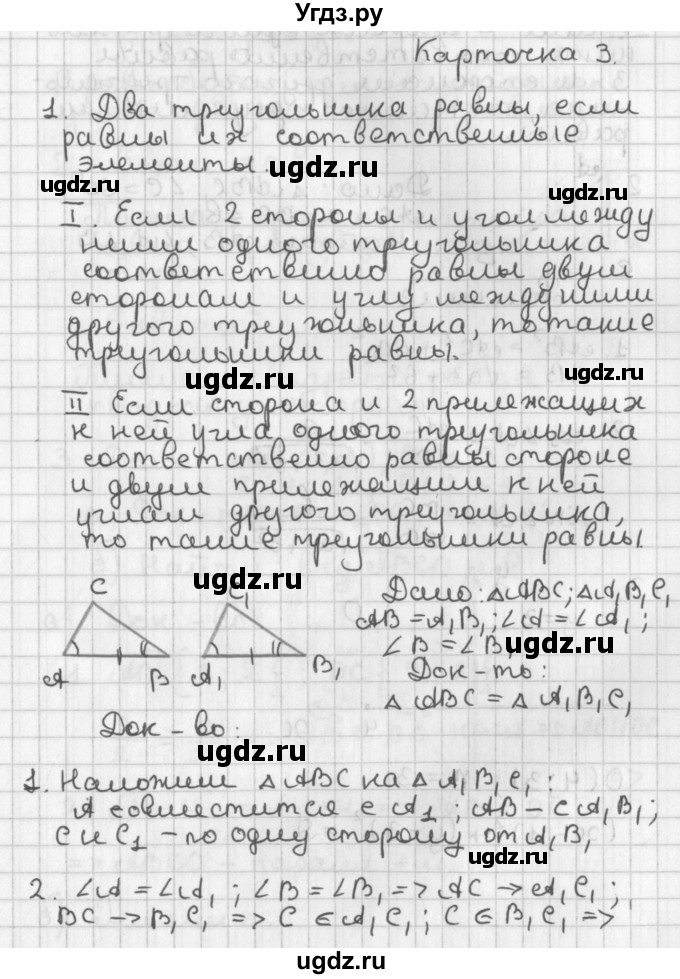 Угдз.ру
Карточка 3.
1. Два треугольника равны, если
равны их соответственные
элементы.
ugdz.ru
ugdz.ru
ugdz.ru
I. Если 2 стороны и угол между
ними одного треугольника
соответственно равны двум
сторонам и углу между ними
другого треугольника, то такие
треугольники равны.
ugdz.ru
ugdz.ru
II Если сторона и 2 прилежащих
к ней угла одного треугольника
соответственно равны стороне
и двум прилежащим к ней
углам другого треугольника,
то такие треугольники равны.
ugdz.ru
ugdz.ru
C C₁ Дано: △ABC; △A₁B₁C₁
AB = A₁B₁; ∠A = ∠A₁;
∠B = ∠B₁
ugdz.ru
A B A₁ B₁ Док-ть:
△ABC = △A₁B₁C₁
Док-во:
ugdz.ru
1. Наложим △ABC на △A₁B₁C₁:
A совместится с A₁; AB – с A₁B₁;
C и C₁ – по одну сторону от A₁B₁
ugdz.ru
2. ∠A = ∠A₁; ∠B = ∠B₁ => AC → A₁C₁;
BC → B₁C₁ => C ∈ A₁C₁; C ∈ B₁C₁ =>
ugdz.ru